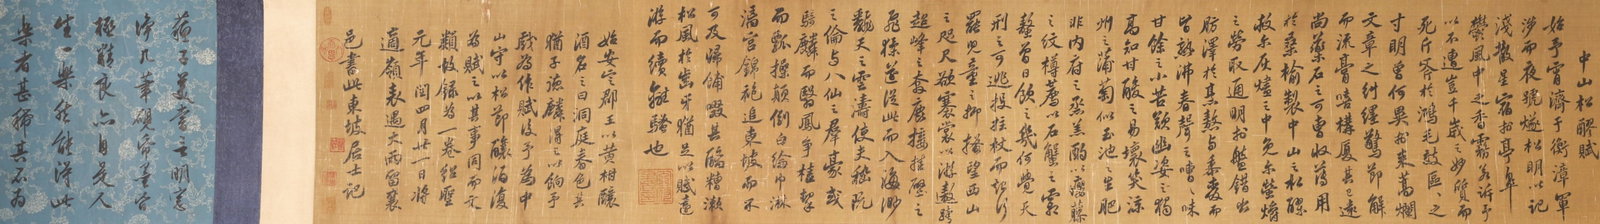 中山松醪賦
始予宵濟于衡漳軍
涉而夜號燧松明以記
淺散星宿於亭皋
鬱風中之香霧若訴予
以不遭豈千歲之妙質而
死斤斧於鴻毛效區區之
寸明曾何異於束蒿爛
文章之糾纏驚節解
而流膏嘻構廈其已遠
尚藥石之可曹收薄用
於桑榆製中山之松醪
救爾灰燼之中免爾螢爝
之勞取通明於盤錯出
肪澤於烹熬與黍麥而
皆熟沸舂聲之嘈嘈味
甘餘之小苦歎幽姿之獨
高知甘酸之易壞笑涼
州之蒲萄似玉池之生肥
非內府之烝羔酌以癭藤
之紋樽薦以石蟹之霜
螯曾日飲之幾何覺天
刑之可逃投拄杖而起行
罷兒童之抑搔望西山
之咫尺欲褰裳以游遨跨
超峰之奔鹿接挂壁之
飛猱遂從此而入海渺
翻天之雲濤使夫嵇阮
之倫與八仙之群豪或
騎麟而翳鳳爭榼挈
而瓢操顛倒白綸巾淋
漓宮錦袍追東坡而不
可及歸餔歠其醨糟漱
松風於齒牙猶足以賦遠
游而續離騷也
始安定郡王以黃柑釀
酒名之曰洞庭春色其
猶子德麟得之以餉予
戲為作賦後予為中
山守以松節釀酒復
為賦之以其事同而文
類故錄為一卷紹聖
元年閏四月廿一日將
適嶺表遇大雨留襄
邑書此東坡居士記
蘓子美嘗言明窗
淨几筆硯帋墨皆
極精良亦自是人
生一樂然能得此
樂者甚稀其不為